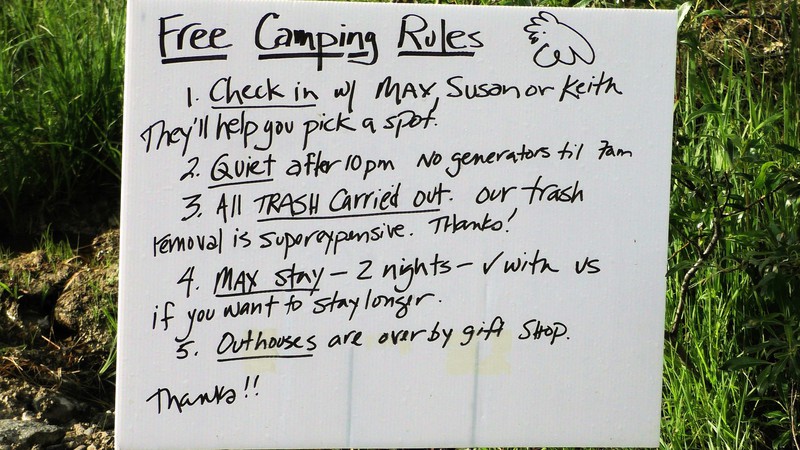 Free Camping Rules
1. Check in w/ MAX, Susan or Keith
They'll help you pick a spot.
2. Quiet after 10 pm No generators til 7am
3. All TRASH Carried out. our trash
removal is superexpensive. Thanks!
4. MAX stay – 2 nights – ✓ with us
if you want to stay longer.
5. Outhouses are over by gift SHOP.
Thanks!!